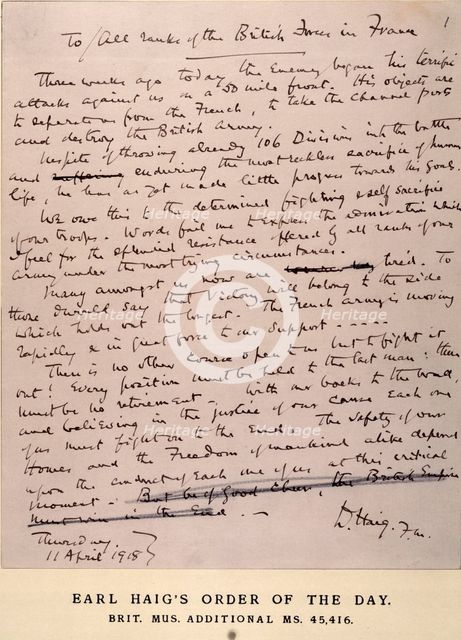 1
To/All ranks of the British Forces in France
Three weeks ago today the Enemy began his terrific
attacks against us on a 50 mile front. His objects are
to separate us from the French, to take the Channel ports
and destroy the British Army.
Inspite of throwing already 106 Divisions into the battle
and suffering enduring the most reckless sacrifice of human
life, he has as yet made little progress towards his goals.
We owe this to the determined fighting & self sacrifice
of our troops. Words fail me to express the admiration which
I feel for the splendid resistance offered by all ranks of our
Army under the most trying circumstances.
Many amongst us now are tired. To
those I would say that Victory will belong to the side
which holds out the longest. The French Army is moving
rapidly & in great force to our support.
There is no other course open to us but to fight it
out! Every position must be held to the last man: there
must be no retirement. With our backs to the wall,
and believing in the justice of our cause each one
of us must fight on to the End. The Safety of our
Homes and the Freedom of mankind alike depend
upon the conduct of Each one of us at this critical
moment. But be of Good Cheer, the British Empire
must win in the End. —
D. Haig. F.M.
Thursday
11 April 1918
Heritage Heritage
Heritage Heritage
Heritage Heritage
C
EARL HAIG'S ORDER OF THE DAY.
BRIT. MUS. ADDITIONAL MS. 45,416.